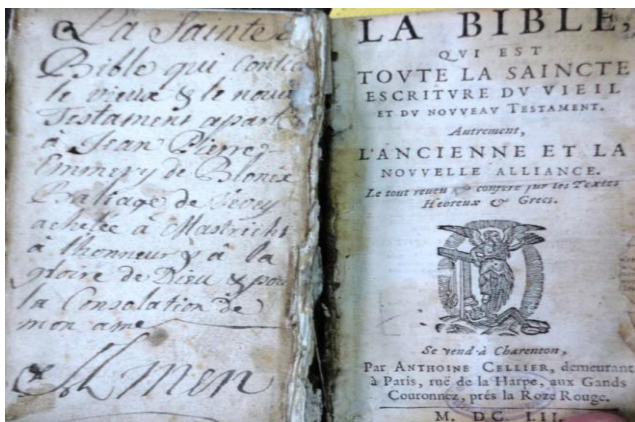 La Sainte
Bible qui contie
le vieux & le nouv
Testament apart
à Jean Pierre
Emmery de Blonex
Baliage de Vevey
achetée à Mastricht
à lhonneur & à la
gloire de Dieu & pou
la Consolation de
mon ame
Amen
LA BIBLE,
QVI EST
TOVTE LA SAINCTE
ESCRITVRE DV VIEIL
ET DV NOVVEAV TESTAMENT.
Autrement,
L'ANCIENNE ET LA
NOVVELLE ALLIANCE.
Le tout reueu & conferé sur les Textes
Hebreux & Grecs.
Se vend à Charenton,
Par ANTHOINE CELLIER, demeurant
à Paris, ruë de la Harpe, aux Gands
Couronnez, prés la Roze Rouge.
M. DC. LII.